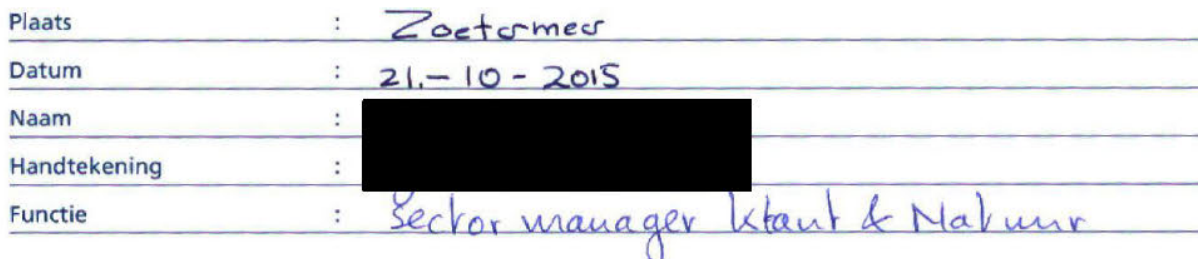 Plaats : Zoetermeer
Datum : 21.-10-2015
Naam :
Handtekening :
Functie : Sector manager Klant & Natuur